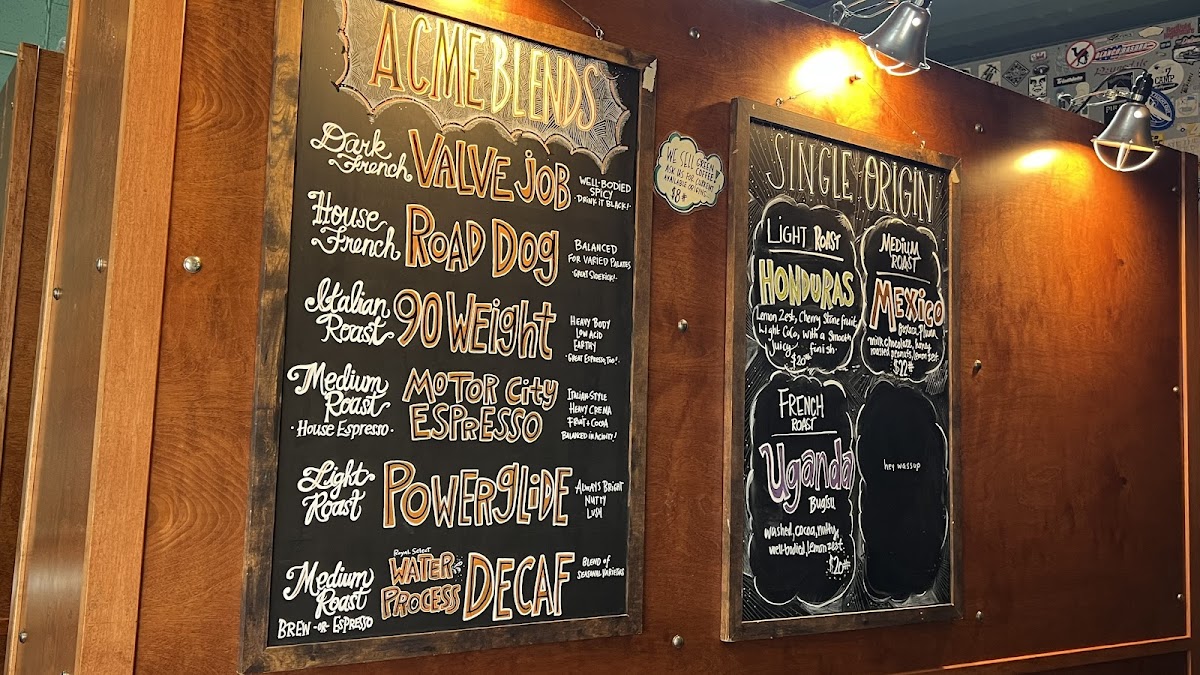 ACME BLENDS
Dark
French
VALVE JOB
WELL-BODIED
SPICY
·DRINK IT BLACK!·
House
French
ROAD DOG
BALANCED
FOR VARIED PALATES
·GREAT SIDEKICK!·
Italian
Roast
90 WEIGHT
HEAVY BODY
LOW ACID
EARTHY
·GREAT ESPRESSO TOO!·
Medium
Roast
·House Espresso·
MOTOR CITY
ESPRESSO
ITALIAN STYLE
HEAVY CREMA
FRUIT + COCOA
BALANCED IN ACIDITY!
Light
Roast
POWERGLIDE
ALWAYS BRIGHT
NUTTY
LUSH
Medium
Roast
BREW -OR- ESPRESSO
Royal Select
WATER
PROCESS
DECAF
BLEND OF
SEASONAL VARIETALS
WE SELL GREEN
COFFEE!
ASK US FOR CURRENT
AVAILABLE ORIGINS
$8#
SINGLE ORIGIN
LIGHT ROAST
HONDURAS
Lemon Zest, Cherry Stone fruit
Light Coco, with a Smooth
Juicy finish.
$20#
MEDIUM
ROAST
MEXICO
Oaxaca, Pluma
milk chocolate, honey
roasted peanuts, lemon zest
$22#
FRENCH
ROAST
Uganda
Bugisu
washed, cocoa, nutty,
well-bodied, lemon zest.
$20#
hey wassup